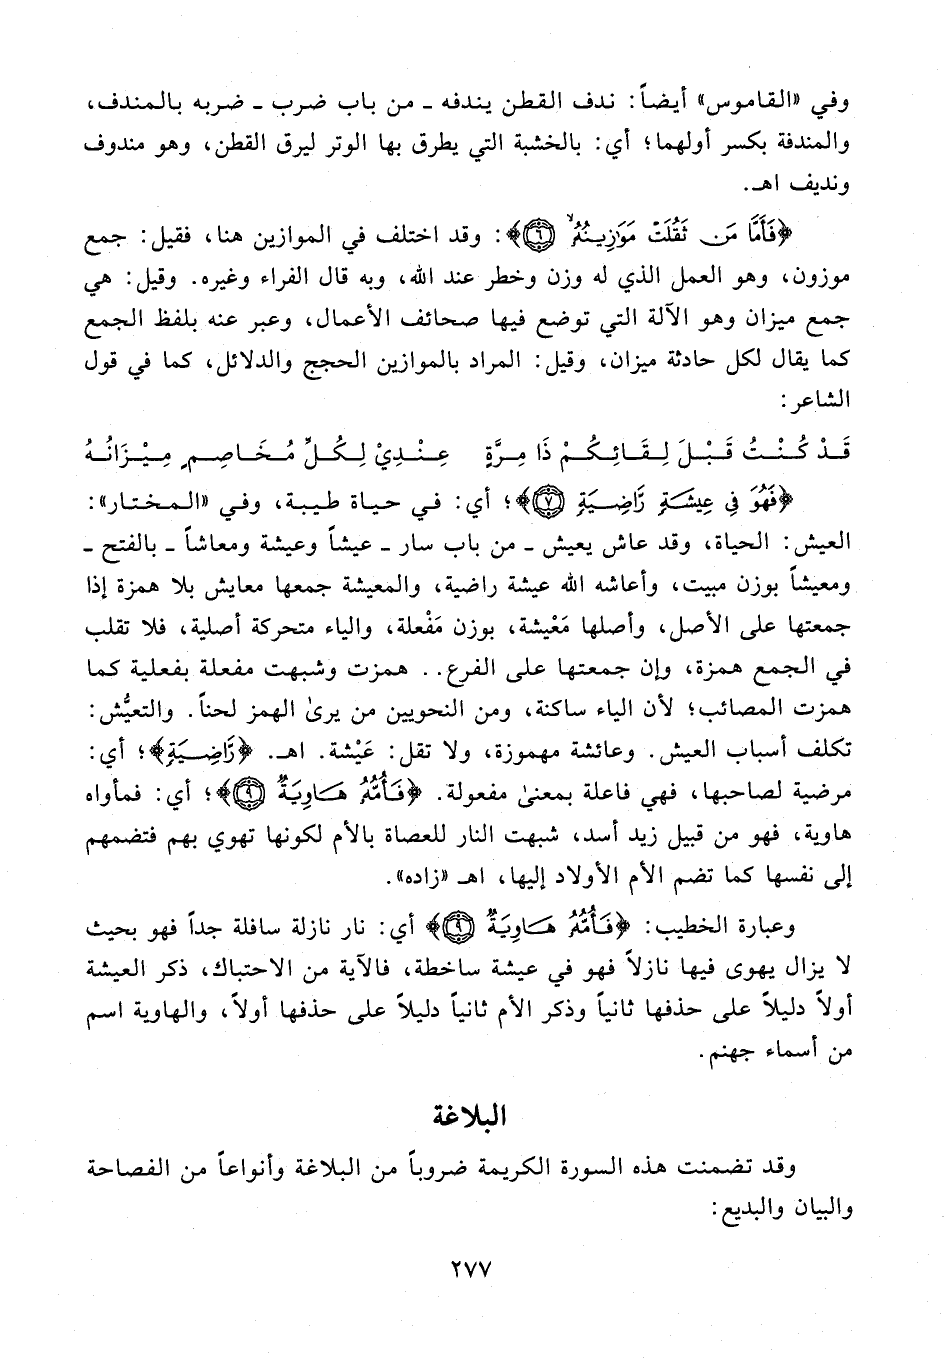 وفي «القاموس» أيضاً: ندف القطن يندفه ـ من باب ضرب ـ ضربه بالمندف،
والمندفة بكسر أولهما؛ أي: بالخشبة التي يطرق بها الوتر ليرق القطن، وهو مندوف
ونديف اهـ.
﴿فَأَمَّا مَن ثَقُلَتْ مَوَازِينُهُۥ ۙ ٦﴾: وقد اختلف في الموازين هنا، فقيل: جمع
موزون، وهو العمل الذي له وزن وخطر عند الله، وبه قال الفراء وغيره. وقيل: هي
جمع ميزان وهو الآلة التي توضع فيها صحائف الأعمال، وعبر عنه بلفظ الجمع
كما يقال لكل حادثة ميزان، وقيل: المراد بالموازين الحجج والدلائل، كما في قول
الشاعر:
قَدْ كُنْتُ قَبْلَ لِقَائِكُمْ ذَا مِرَّةٍ عِنْدِيْ لِكُلِّ مُخَاصِمٍ مِيْزَانُهُ
﴿فَهُوَ فِي عِيشَةٍ رَّاضِيَةٍ ٧﴾؛ أي: في حياة طيبة، وفي «المختار»:
العيش: الحياة، وقد عاش يعيش ـ من باب سار ـ عيشاً وعيشة ومعاشاً ـ بالفتح ـ
ومعيشاً بوزن مبيت، وأعاشه الله عيشة راضية، والمعيشة جمعها معايش بلا همزة إذا
جمعتها على الأصل، وأصلها مَعْيشة، بوزن مَفْعلة، والياء متحركة أصلية، فلا تقلب
في الجمع همزة، وإن جمعتها على الفرع.. همزت وشبهت مفعلة بفعلية كما
همزت المصائب؛ لأن الياء ساكنة، ومن النحويين من يرىٰ الهمز لحناً. والتعيُّش:
تكلف أسباب العيش. وعائشة مهموزة، ولا تقل: عَيْشة. اهـ. ﴿رَّاضِيَةٍ﴾؛ أي:
مرضية لصاحبها، فهي فاعلة بمعنىٰ مفعولة. ﴿فَأُمُّهُۥ هَاوِيَةٌ ٩﴾؛ أي: فمأواه
هاوية، فهو من قبيل زيد أسد، شبهت النار للعصاة بالأم لكونها تهوي بهم فتضمهم
إلى نفسها كما تضم الأم الأولاد إليها، اهـ «زاده».
وعبارة الخطيب: ﴿فَأُمُّهُۥ هَاوِيَةٌ ٩﴾ أي: نار نازلة سافلة جداً فهو بحيث
لا يزال يهوى فيها نازلاً فهو في عيشة ساخطة، فالآية من الاحتباك، ذكر العيشة
أولاً دليلاً على حذفها ثانياً وذكر الأم ثانياً دليلاً على حذفها أولاً، والهاوية اسم
من أسماء جهنم.
البلاغة
وقد تضمنت هذه السورة الكريمة ضروباً من البلاغة وأنواعاً من الفصاحة
والبيان والبديع:
٢٧٧